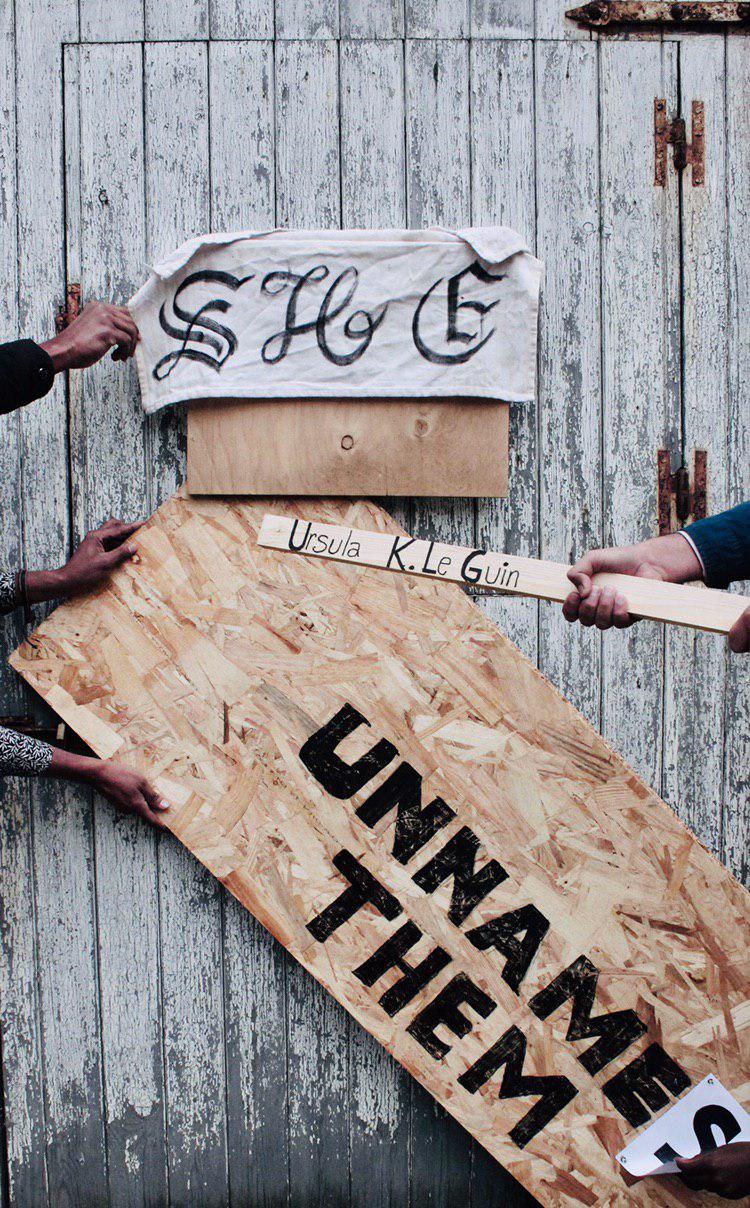 SHE
Ursula K. Le Guin
UNNAMES
THEM